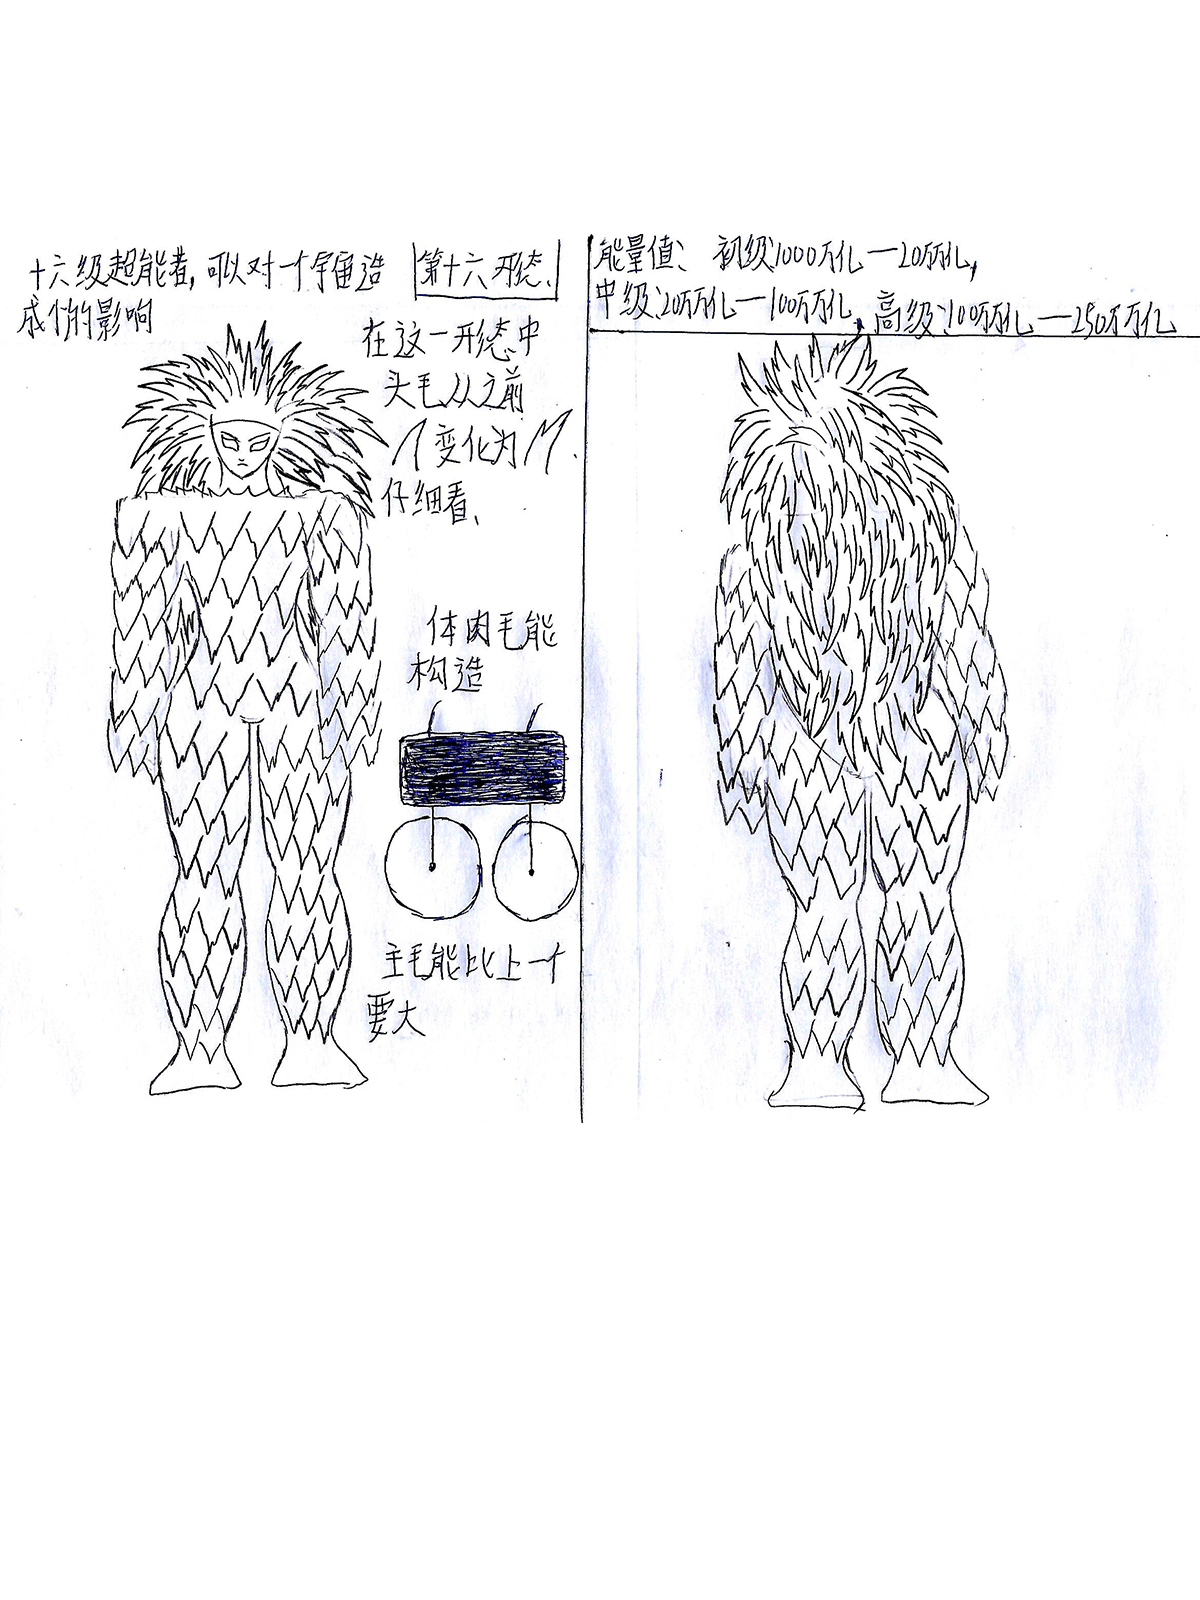 十六级超能者,可以对一个宇宙造
成的影响
第十六形态.
在这一形态中
头毛从之前
变化为
仔细看、
体内毛能
构造
主毛能比上一个
要大
能量值: 初级:1000万亿—20万万亿,
中级:20万万亿—100万万亿, 高级:100万万亿—250万万亿